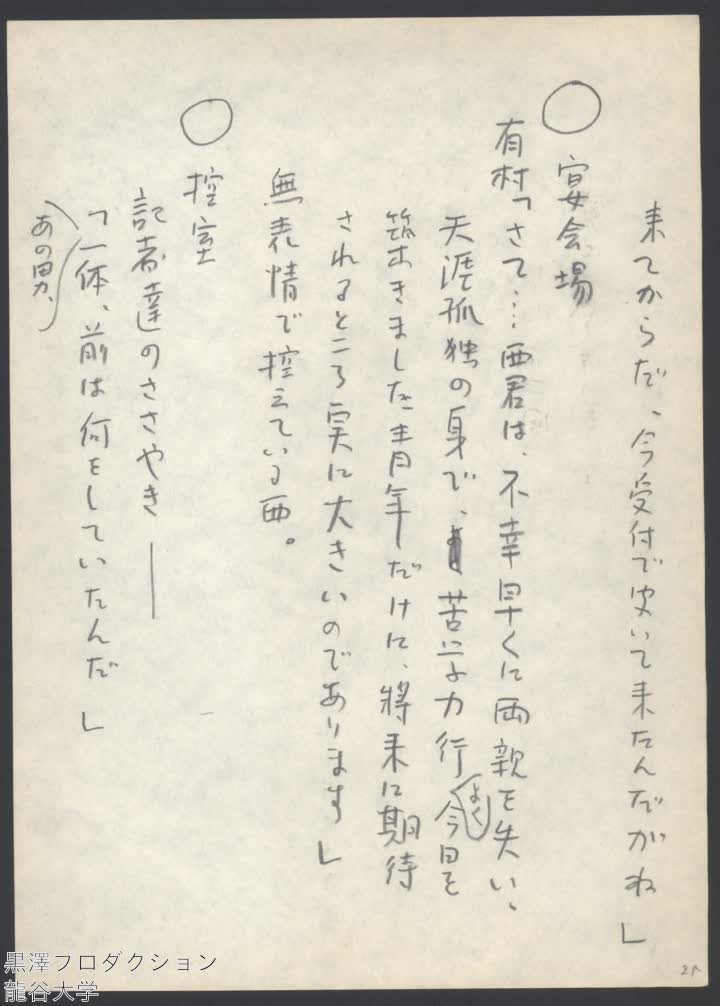 来てからだ、今受付で聞いて来たんだがね」
○ 宴会場
有村「さて…西君は、不幸早くに両親を失い、
天涯孤独の身で、苦学力行よく今日を
築きました青年だけに、将来に期待
されるところ実に大きいのであります」
無表情で控えている西。
○ 控室
記者達のささやき――
「一体、前は何をしていたんだ」
あの男、
黒澤プロダクション
龍谷大学